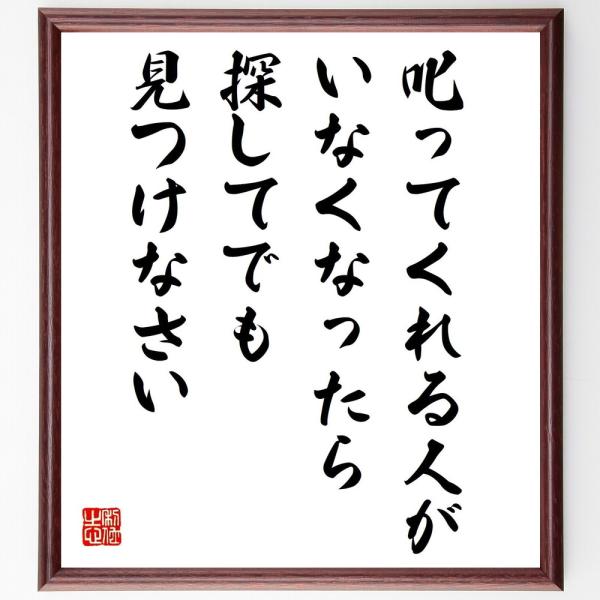 叱ってくれる人が
いなくなったら
探してでも
見つけなさい